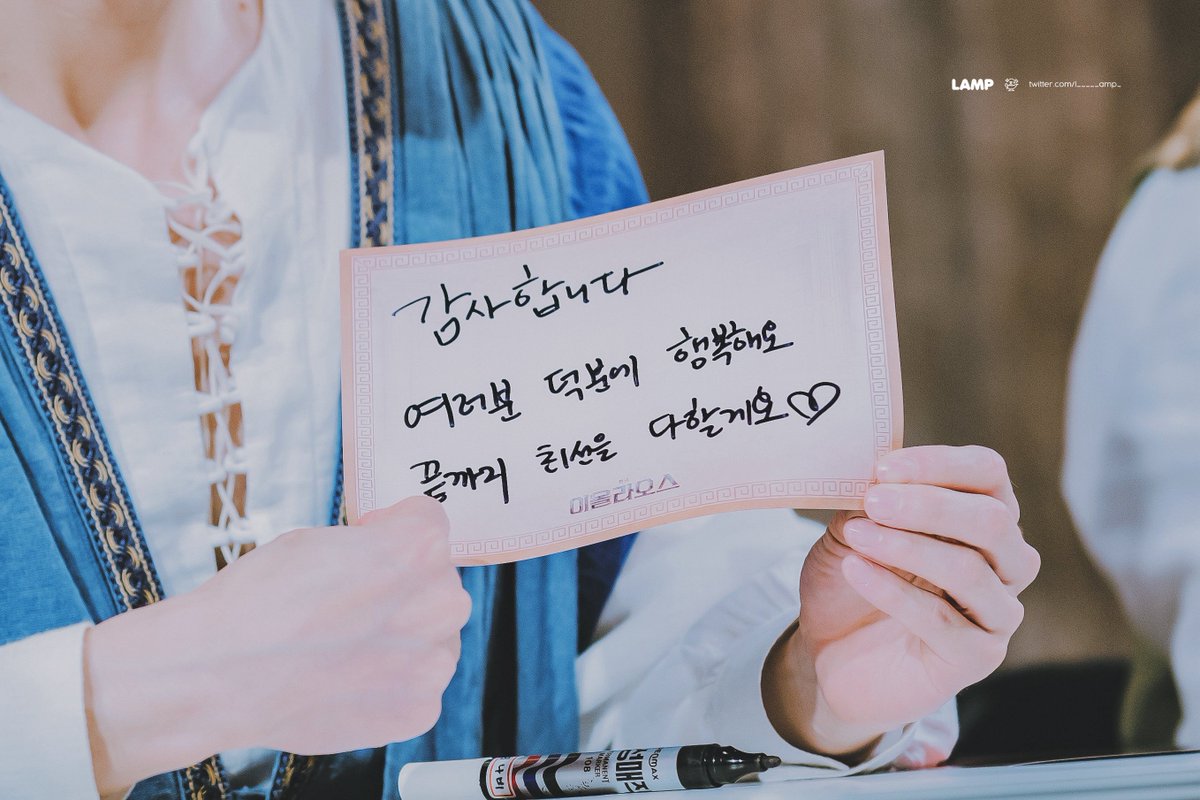 LAMP twitter.com/l_____amp_
감사합니다
여러분 덕분에 행복해요
끝까지 최선을 다할게요♡
이올라오스